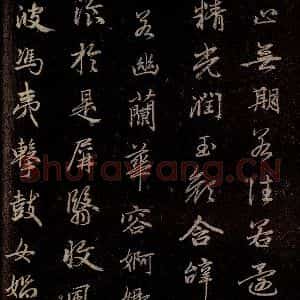 止無期若往若還
精光潤玉顏含辭
若幽蘭華容婀娜
於是屏翳收風
波馮夷擊鼓女媧
Shufawang.CN